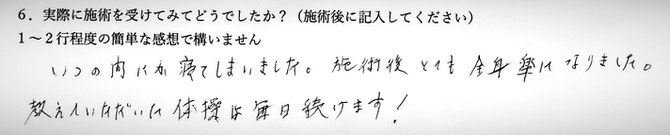 6．実際に施術を受けてみてどうでしたか？（施術後に記入してください）
1～2行程度の簡単な感想で構いません
いつの間にか寝てしまいました。施術後とても全身楽になりました。
教えていただいた体操は毎日続けます！